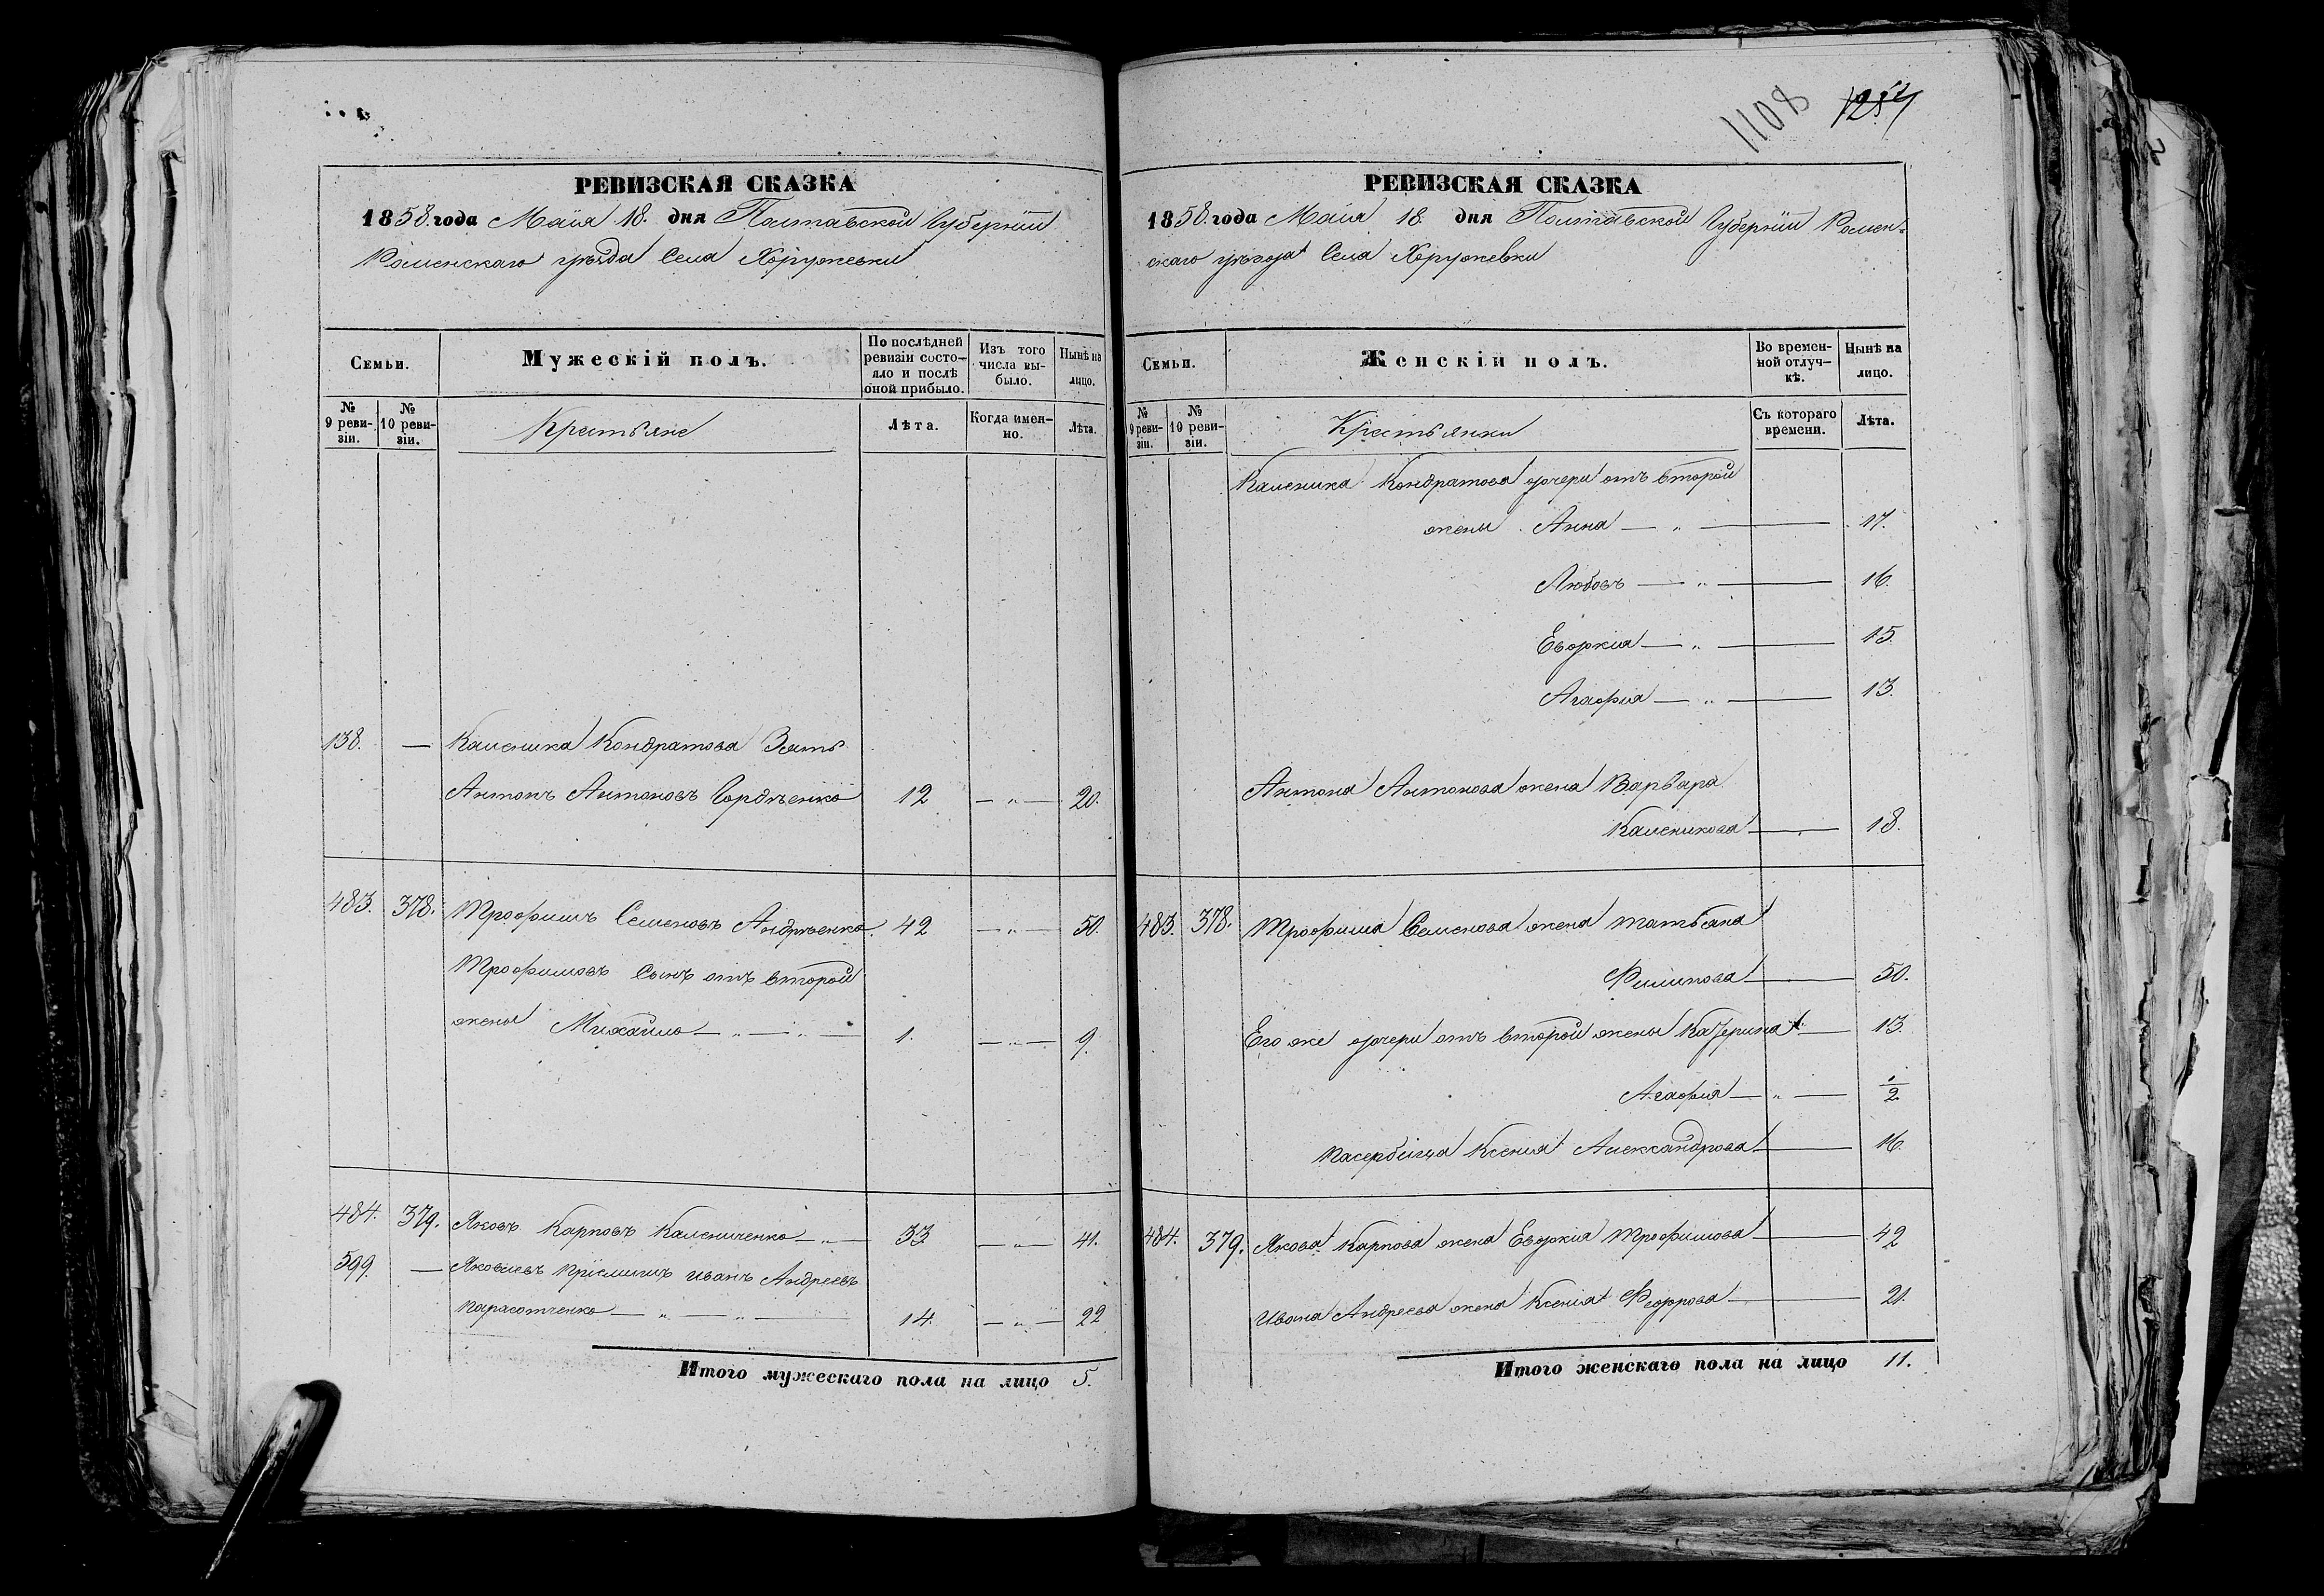 РЕВИЗСКАЯ СКАЗКА
1858. года Маія 18. дня Полтавской Губерніи
Роменскаго уѣзда Села Хоружевки
Семьи.
Мужескій полъ.
По послѣдней ревизіи состояло и послѣ оной прибыло.
Изъ того числа выбыло.
Нынѣ на лицо.
№ 9 ревизіи.
№ 10 ревизіи.
Крестьяне
Лѣта.
Когда именно.
Лѣта.
138. — Каленика Кондратова Зять
Антонъ Антоновъ Гордѣенко 12 — „ — 20.
483. 378. Трофимъ Семеновъ Андрѣенко. 42 — „ — 50.
Трофимовъ Сынъ отъ второй
жены Михайло — „ — „ — 1. — „ — 9.
484. 379. Яковъ Карповъ Калениченко — „ — 33 — „ — 41.
599. — Яковлевъ пріемышъ Иванъ Андреевъ
— „ — „ — 14. — „ — 22
Итого мужескаго пола на лицо 5.
1108 1257
РЕВИЗСКАЯ СКАЗКА
1858. года Маія 18. дня Полтавской Губерніи Ромен-
скаго уѣзда Села Хоружевки
Семьи.
Женскій полъ.
Во временной отлучкѣ.
Нынѣ на лицо.
№ 9 ревизіи.
№ 10 ревизіи.
Крестьянки
Съ котораго времени.
Лѣта.
Каленика Кондратова дочери отъ второй
жены Анна — „ — 17.
Любовь — „ — 16.
Евдокія — „ — 15.
Агафія — „ — 13.
Антона Антонова жена Варвара
Каленикова — „ — 18.
483. 378. Трофима Семенова жена Татьяна
Филипова — 50.
Его же дочери отъ второй жены Катерина — 13.
Агафія — „ — 1/2
Пасербица Ксенія Александрова — 16.
484. 379. Якова Карпова жена Евдокія Трофимова — 42
Ивана Андреева жена Ксенія Федорова — 21.
Итого женскаго пола на лицо 11.